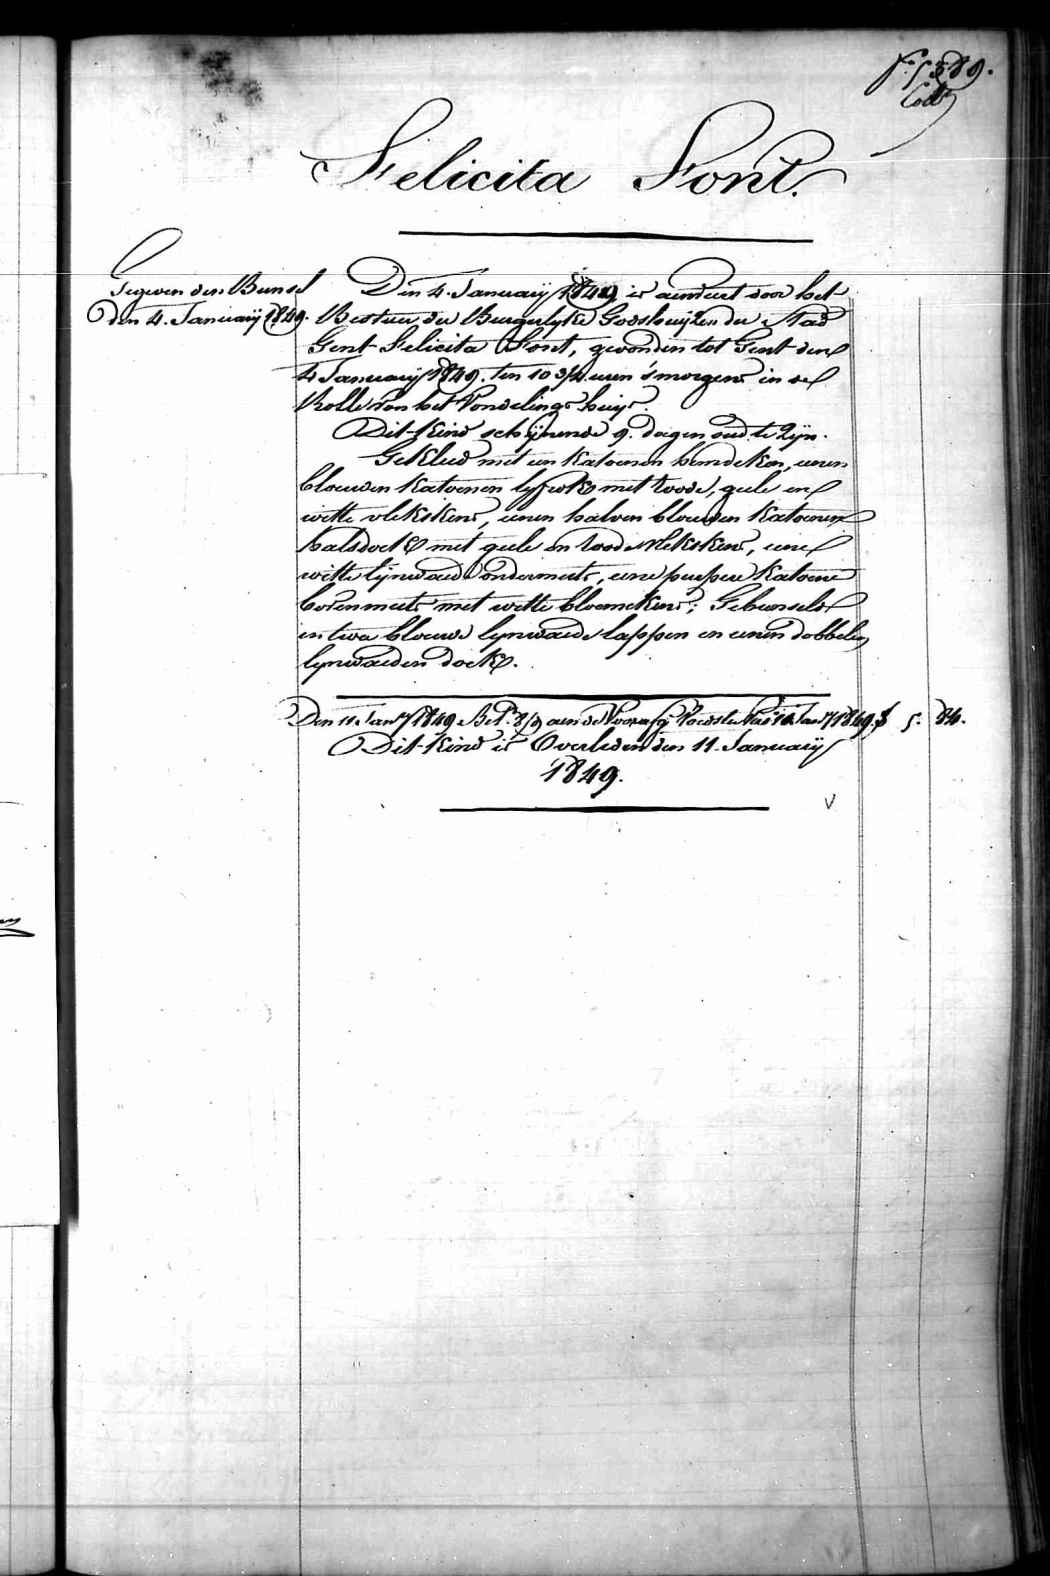 f.° 5389.
Felicita Font.
Gegeven den Bunsel
den 4. January 1849.
Den 4. January 1849 is aenveert door het
Bestuer der Burgerlyke Godshuijzen der Stad
Gent Felicita Font, gevonden tot Gent den
4 January 1849. ten 10 3/4 uren 's morgens in de
Rolle van het Vondelings huijs.
Dit Kind schijnende 9. dagen oud te zijn.
Gekleed met een Katoenen hemdeken, eenen
blauwen Katoenen lyfrok met roode, geele en
witte vlekskens, eenen halven blauwen Katoenen
halsdoek met geele en roode vlekskens, eene
witte lijnwaede ondermuts, eene purpere Katoene
bovenmuts met witte bloemekens; Gebunseld
in twee blauwe lynwaede lappen en eenen dobbelen
lynwaeden doek.
Den 11 Jan.y 1849 Bet. aen de 1849. f 5. 84.
Dit Kind is Overleden den 11. January
1849.
V